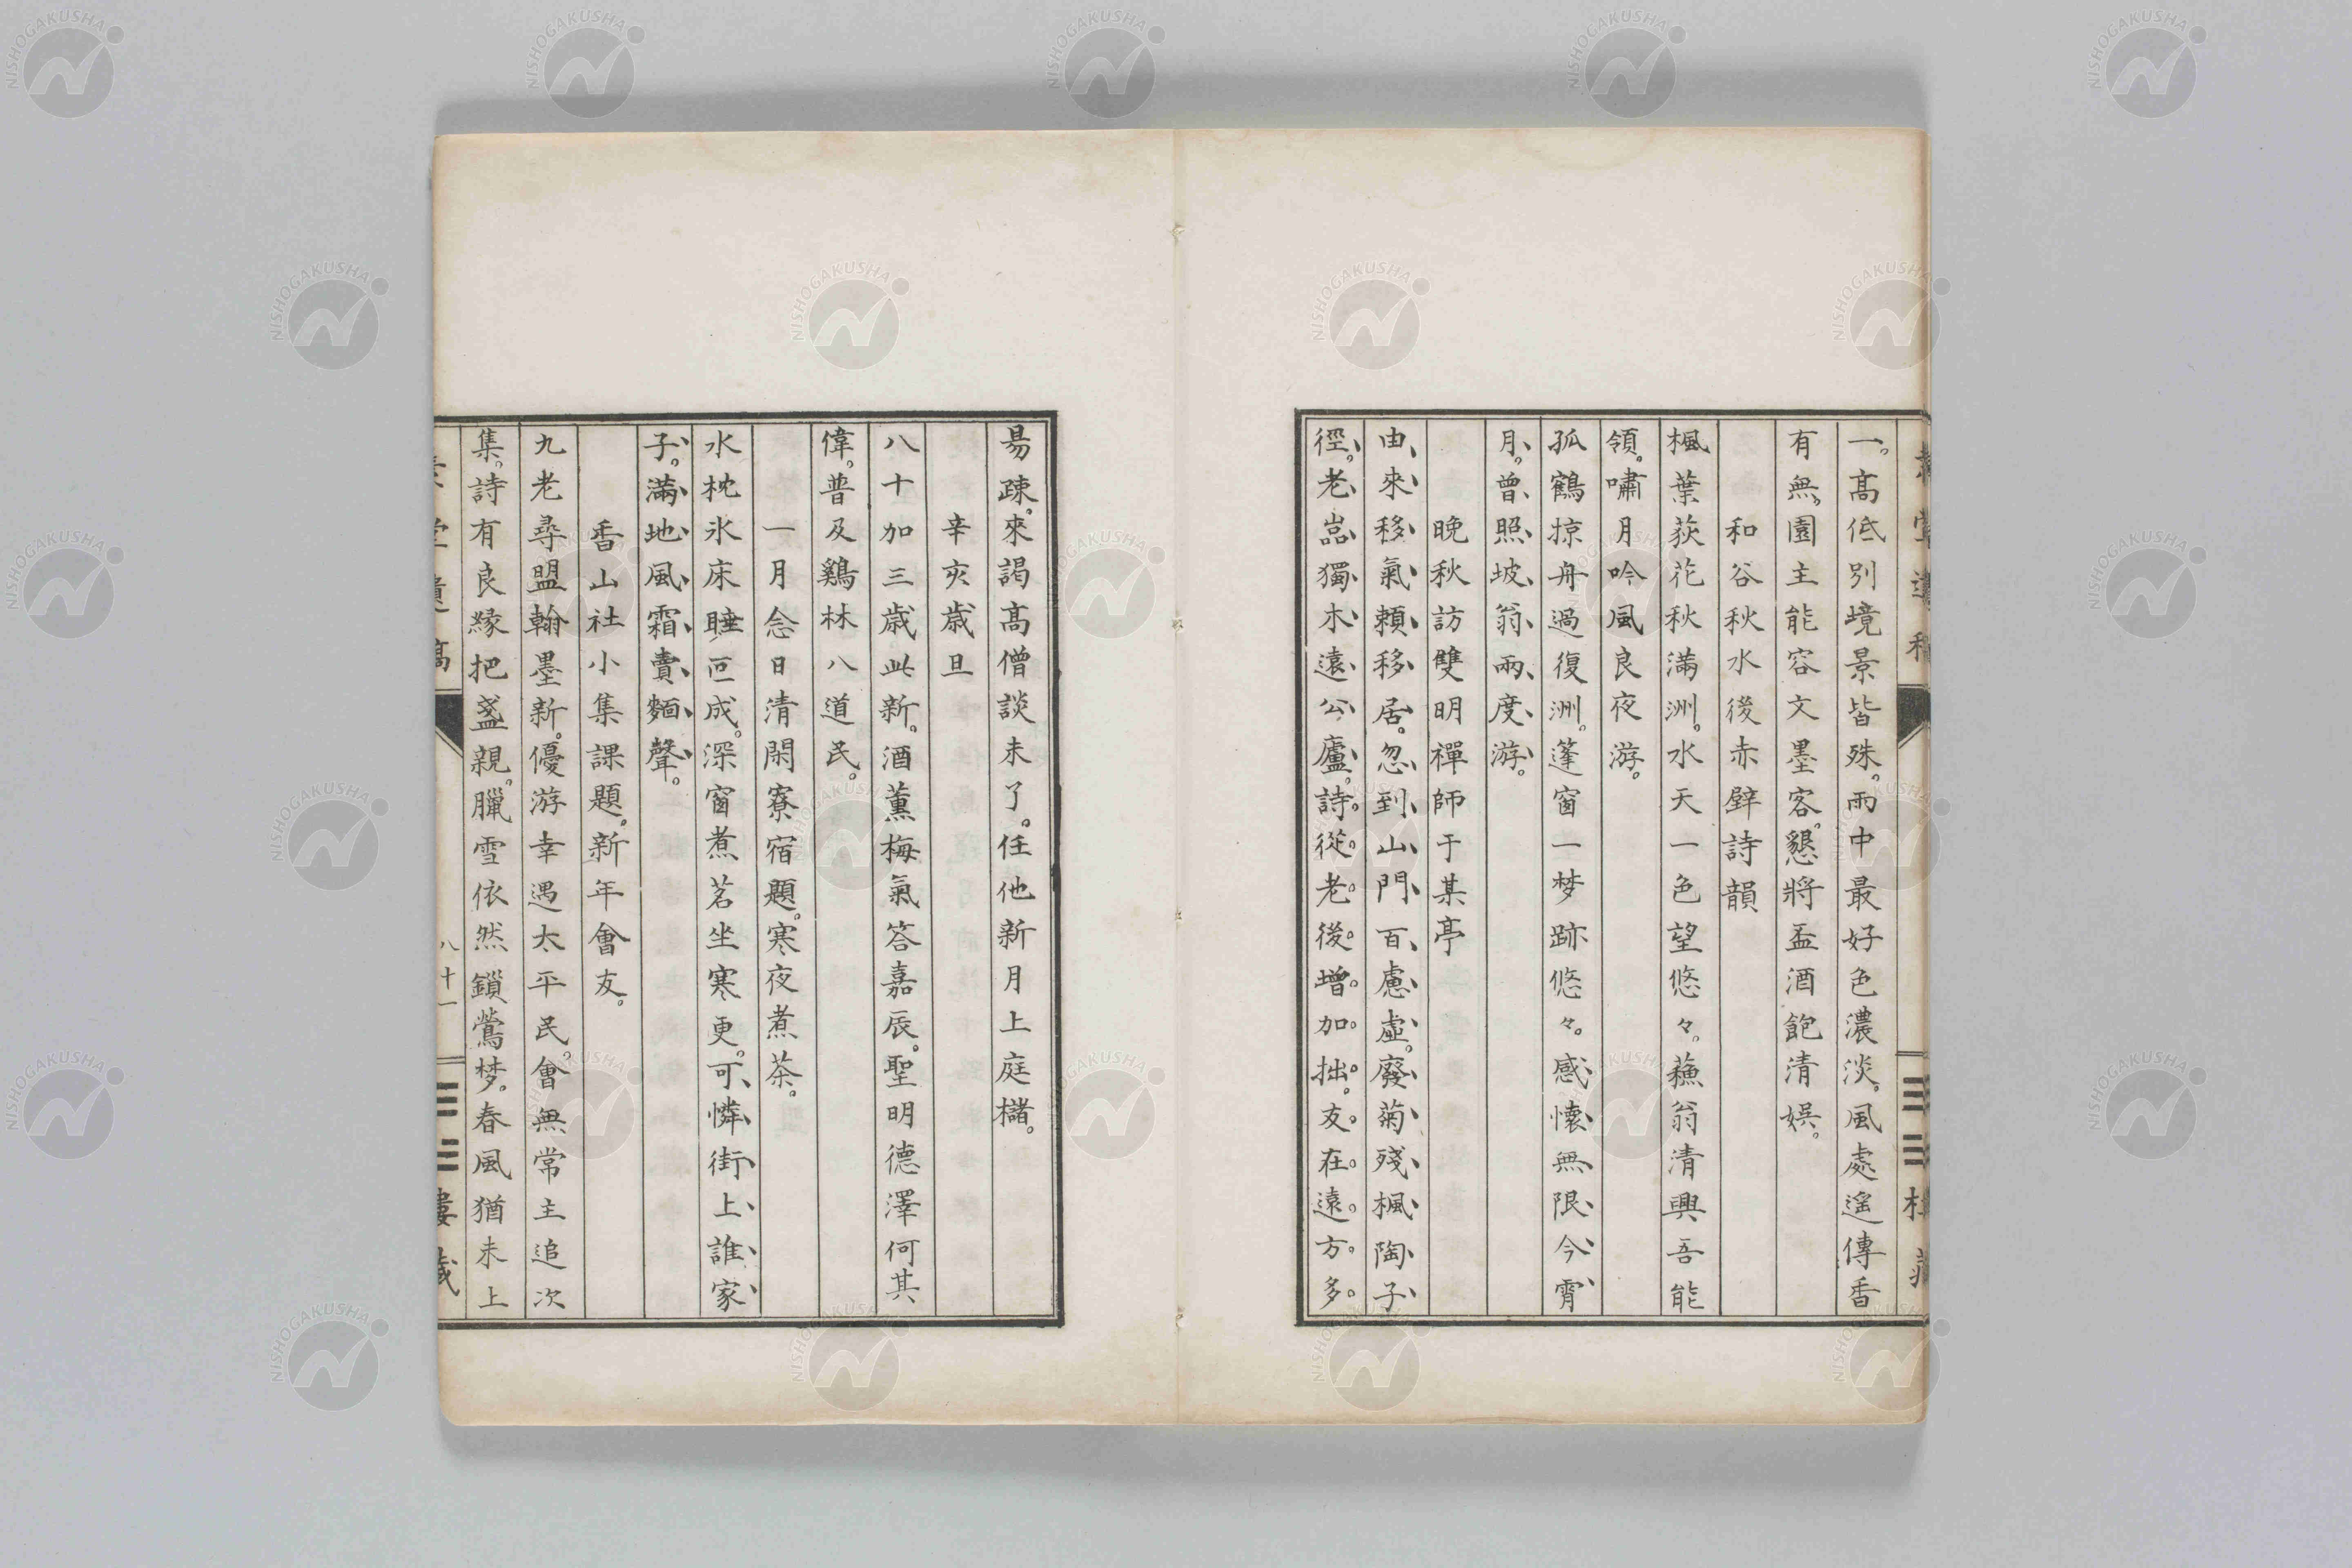 一。高低別境景皆殊。雨中最好色濃淡。風處遙傳香
有無。園主能容文墨客。懇將盃酒飽清娯。
和谷秋水後赤壁詩韻
楓葉荻花秋滿洲。水天一色望悠々。蘓翁清興吾能
領。嘯月吟風良夜游。
孤鶴掠舟過復洲。篷窗一梦跡悠々。感懷無限今宵
月。曾照坡翁兩度游。
晚秋訪雙明禪師于某亭
由來移氣賴移居。忽到山門百慮虛。廢菊殘楓陶子
徑。老嵓獨木遠公廬。詩從老後增加拙。友在遠方多
易疎。來謁高僧談未了。任他新月上庭櫧。
辛亥歲旦
八十加三歲此新。酒薰梅氣答嘉辰。聖明德澤何其
偉。普及鷄林八道民。
一月念日清閑寮宿題。寒夜煮茶。
水枕氷床睡叵成。深窗煮茗坐寒更。可憐街上誰家
子。滿地風霜賣麵聲。
香山社小集課題。新年會友。
九老尋盟翰墨新。優游幸遇太平民。會無常主追次
集。詩有良緣把盞親。臘雪依然鎖鶯梦。春風猶未上
八十一
NISHOGAKUSHA